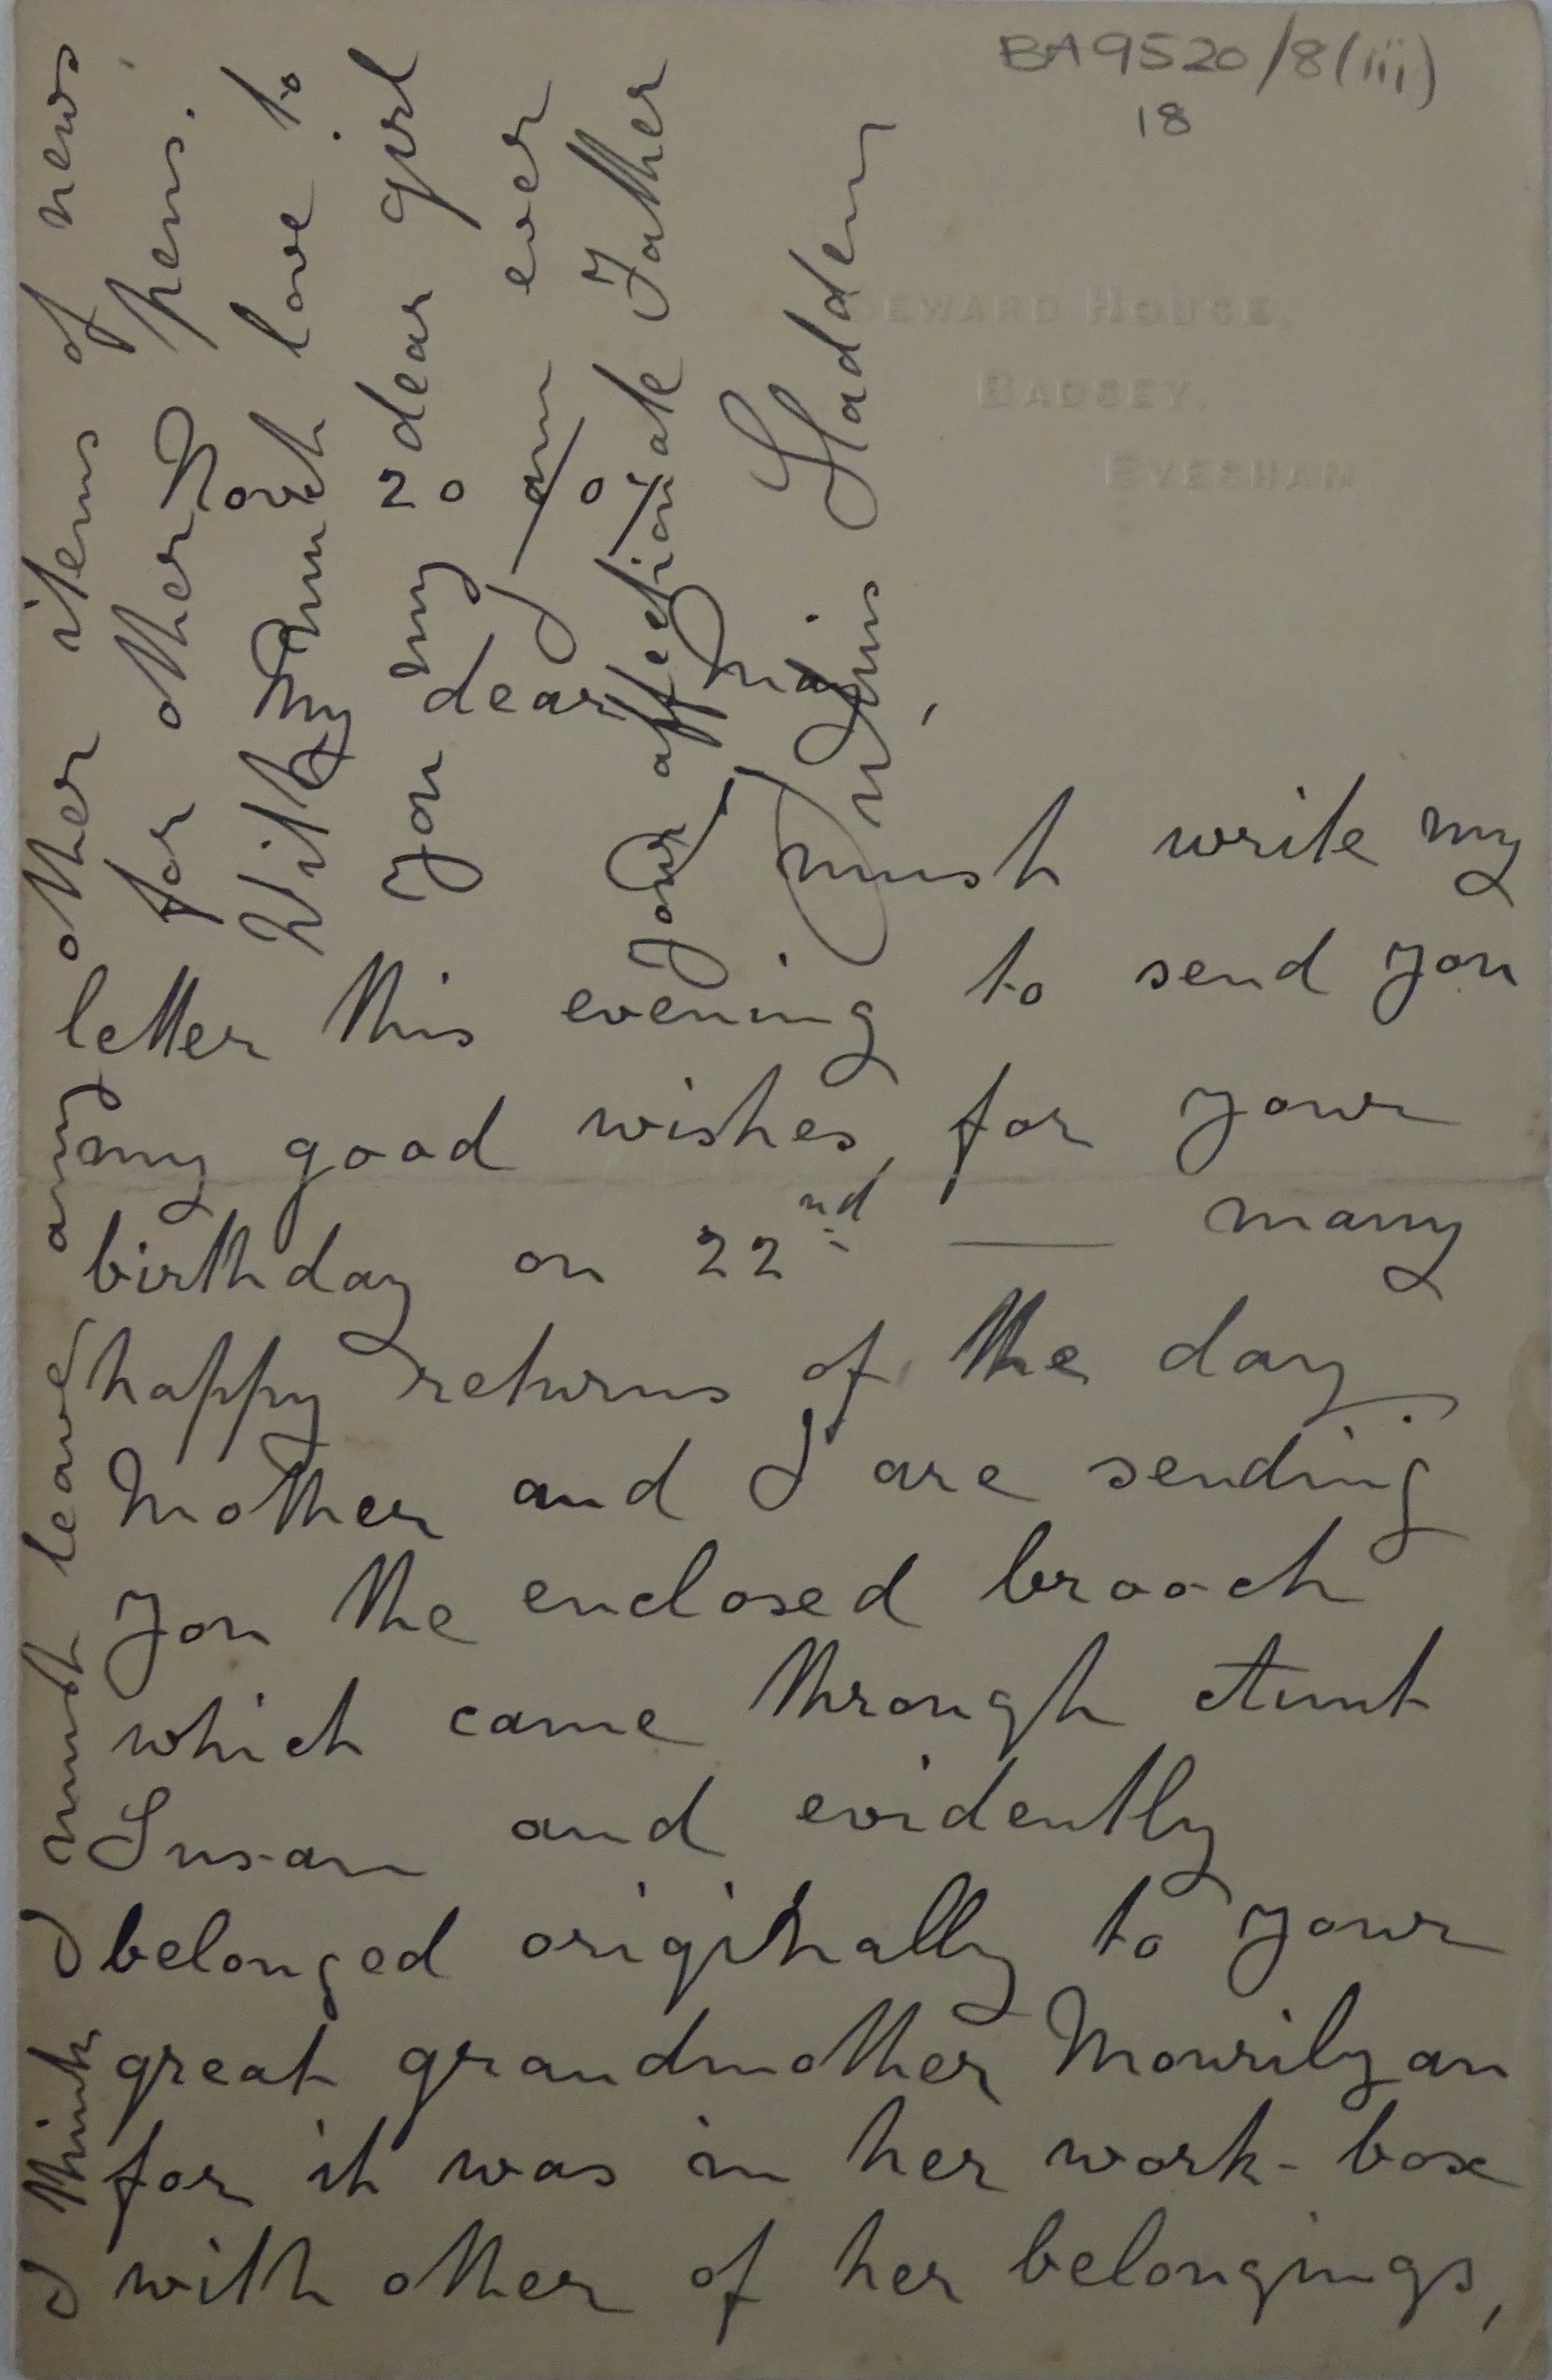 BA9520/8(iii)
18
SEWARD HOUSE.
BADSEY.
EVESHAM
Nov 20/07
My dear May,
I must write my
letter this evening to send you
my good wishes for your
birthday on 22nd — many
happy returns of the day.
Mother and I are sending
you the enclosed brooch
which came through Aunt
Susan and evidently
belonged originally to your
great grandmother Mourilyan
for it was in her work-box
with other of her belongings,
I think I must leave any other items of news
for other pens.
With much love to
you my dear girl
I am ever
Your affectionate Father
Julius Sladden